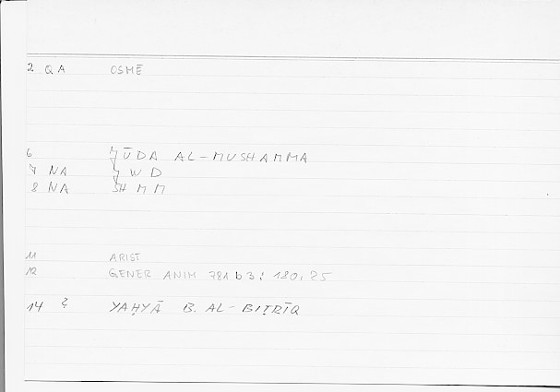 2 QA OSMĒ
6 JŪDA AL-MUSHAMMA
7 NA J W D
8 NA SH M M
11 ARIST
12 GENER ANIM 781 b 3 : 180.25
14 YAḤYĀ B. AL-BIṬRĪQ